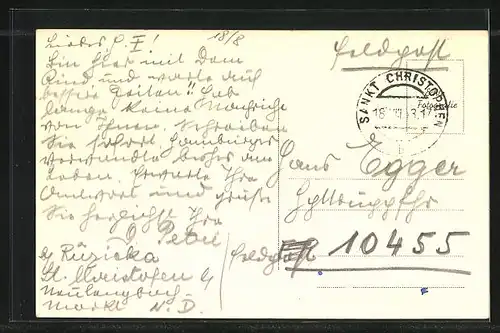 18/8
Liebes P. E!
Bin hier mit dem
Kind und warte auf
bessere Zeiten!! Hab
lange keine Nachricht
von Ihnen. Schreiben
Sie sofort. Hamburger
Verwandte bisher am
Leben. Erwarte Ihre
Antwort und grüße
Sie herzlichst Ihre
Petri
b/ Růzicka
St. Christofen b/
Neulengbach
Markt N. D.
Feldpost
SANKT CHRISTOPHEN
18
Fotografie
Hans Egger
Feldpost
10455